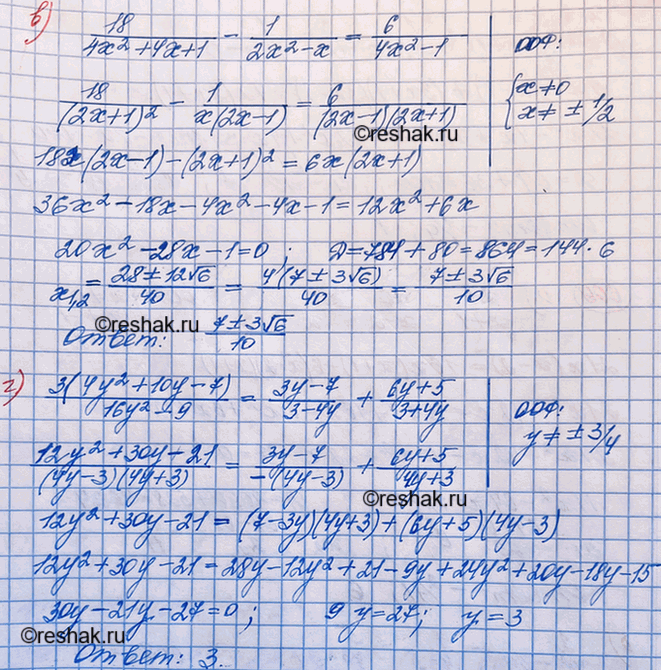 в) 18/(4x²+4x+1) - 1/(2x²-x) = 6/(4x²-1) ООФ:
18/(2x+1)² - 1/(x(2x-1)) = 6/((2x-1)(2x+1)) {x≠0 x≠±1/2
©reshak.ru
18x(2x-1)-(2x+1)²=6x(2x+1)
36x²-18x-4x²-4x-1=12x²+6x
20x²-28x-1=0; D=784+80=864=144·6
x1,2 = (28±12√6)/40 = 4(7±3√6)/40 = (7±3√6)/10
©reshak.ru
Ответ: (7±3√6)/10
г) 3(4y²+10y-7)/(16y²-9) = (3y-7)/(3-4y) + (6y+5)/(3+4y) ООФ: y≠±3/4
(12y²+30y-21)/((4y-3)(4y+3)) = (3y-7)/(-(4y-3)) + (6y+5)/(4y+3)
©reshak.ru
12y²+30y-21=(7-3y)(4y+3)+(6y+5)(4y-3)
12y²+30y-21=28y-12y²+21-9y+24y²+20y-18y-15
30y-21y-27=0; 9y=27; y=3
©reshak.ru
Ответ: 3.